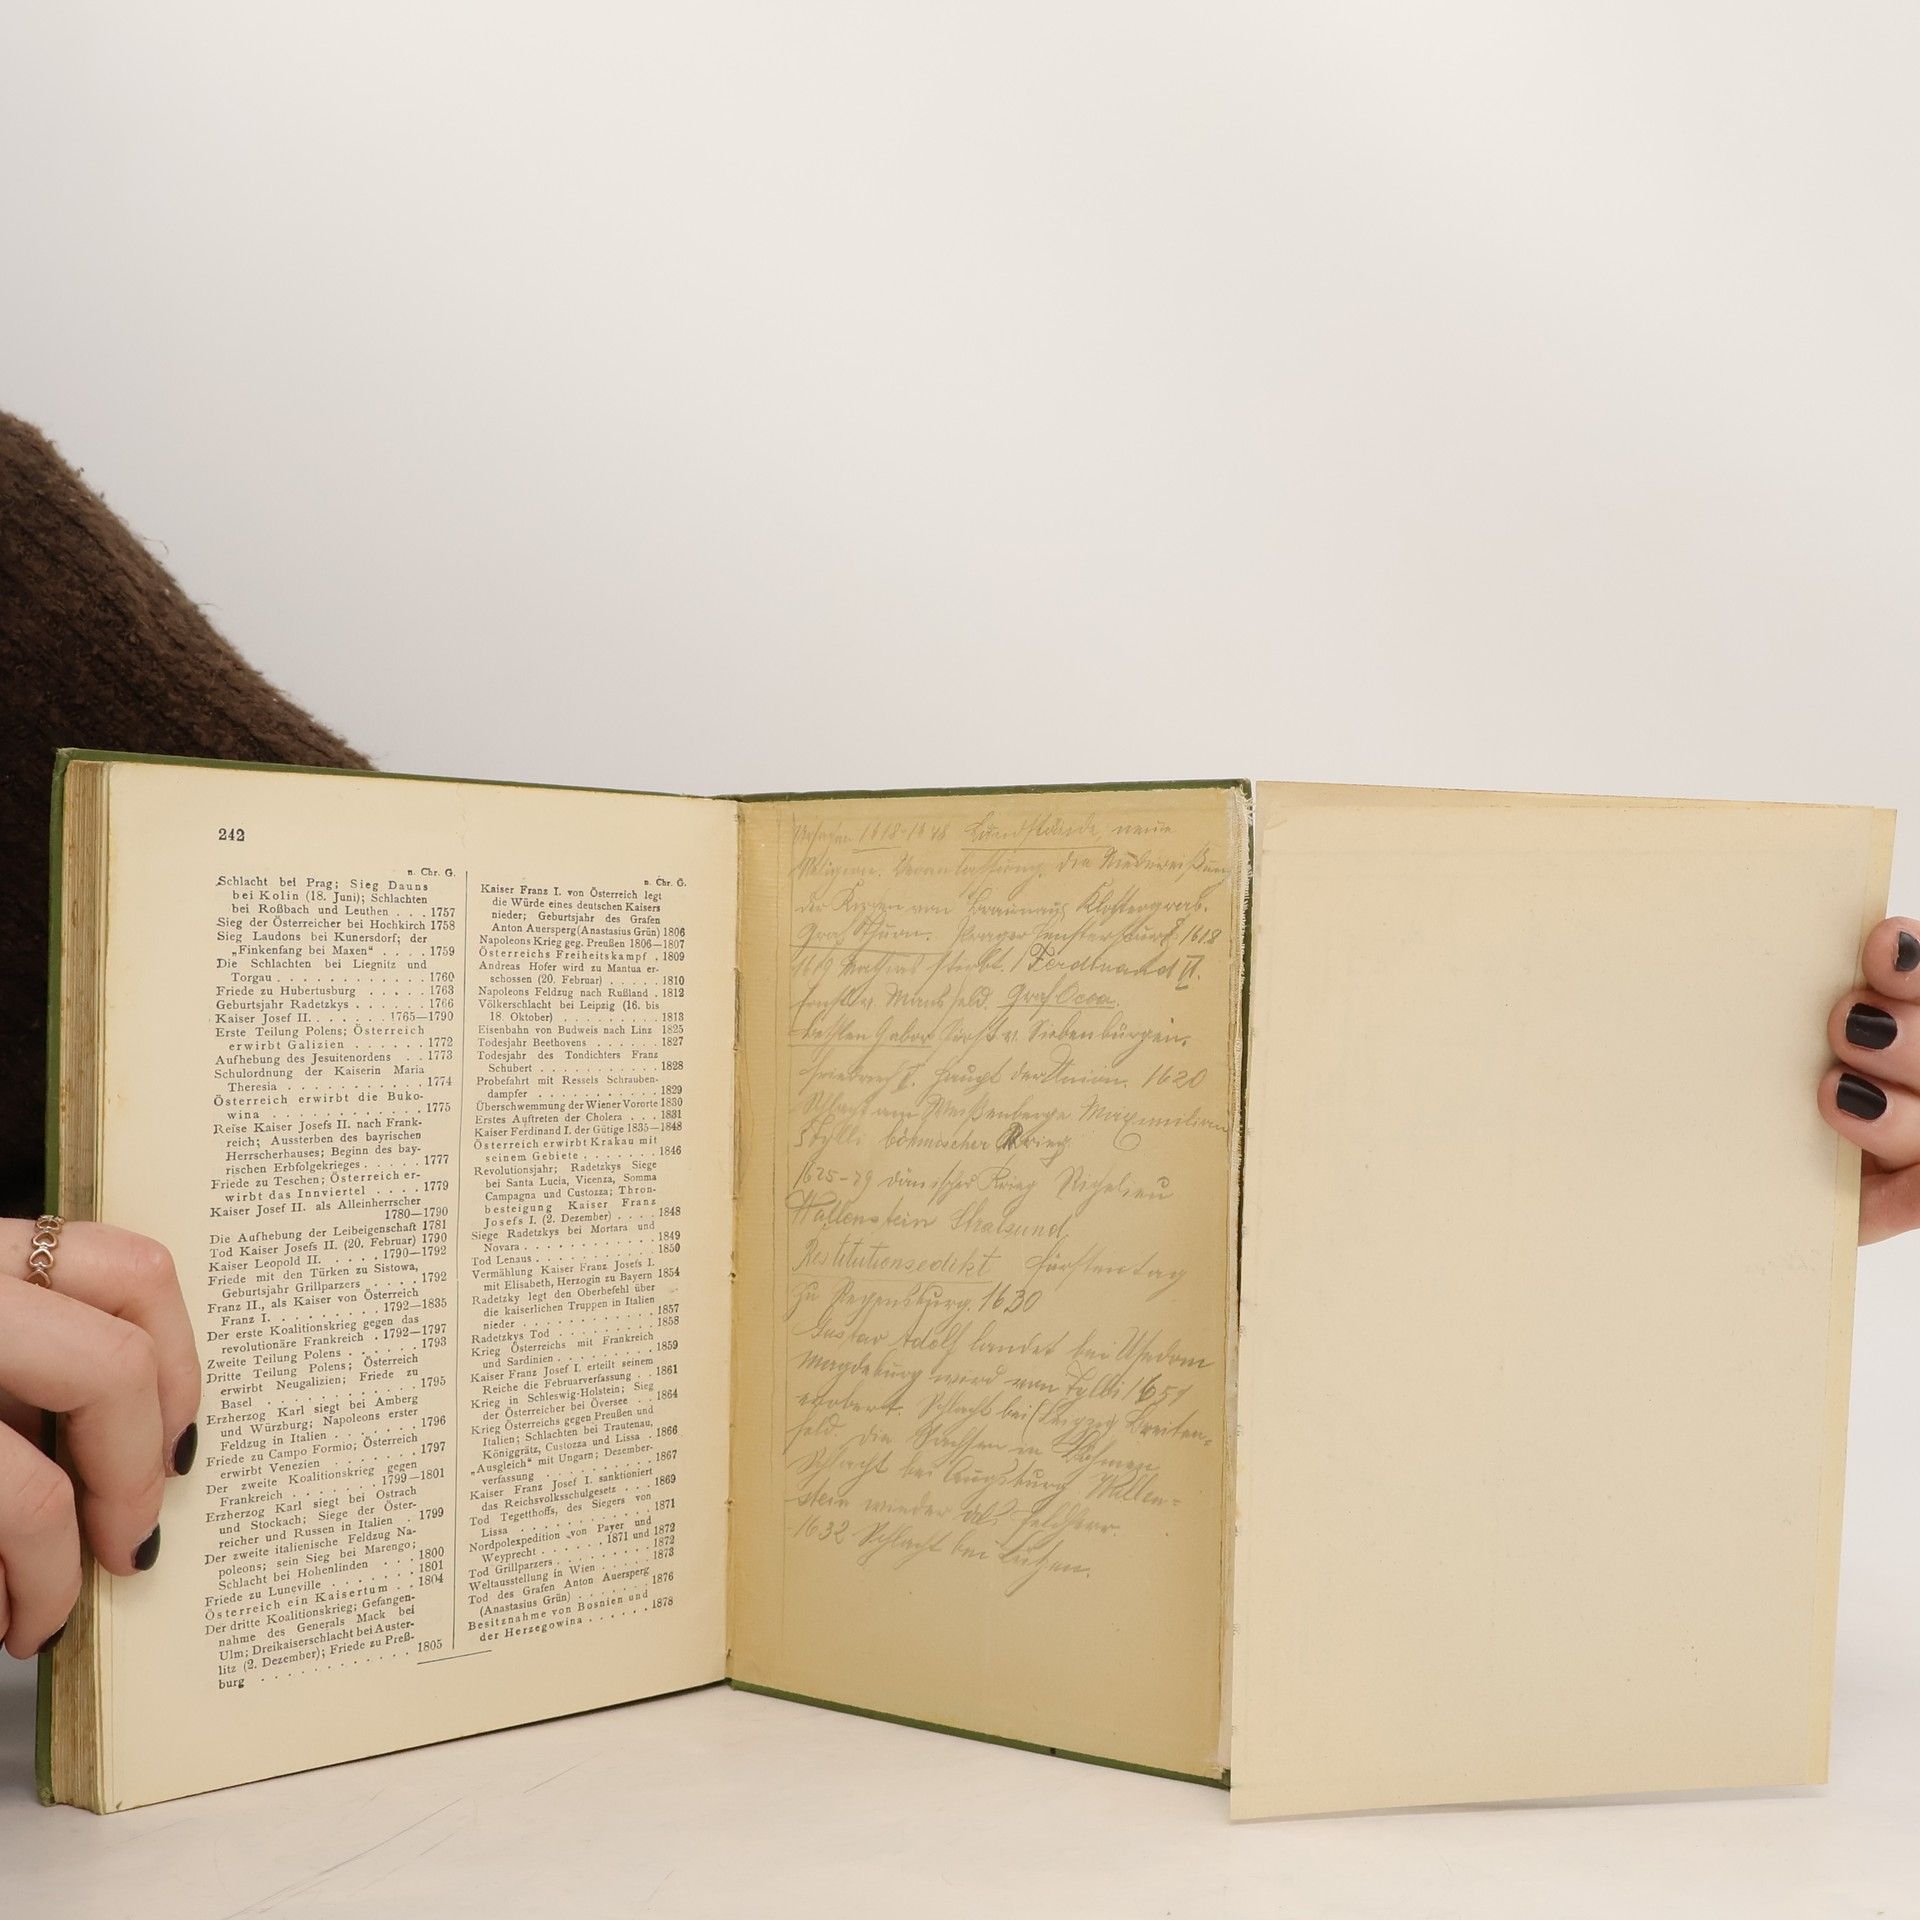 242
n. Chr. G.
Schlacht bei Prag; Sieg Dauns
bei Kolin (18. Juni); Schlachten
bei Roßbach und Leuthen . . . 1757
Sieg der Österreicher bei Hochkirch 1758
Sieg Laudons bei Kunersdorf; der
„Finkenfang bei Maxen“ . . . . 1759
Die Schlachten bei Liegnitz und
Torgau . . . . . . . . . . . 1760
Friede zu Hubertusburg . . . . . 1763
Geburtsjahr Radetzkys . . . . . 1766
Kaiser Josef II. . . . . . . 1765—1790
Erste Teilung Polens; Österreich
erwirbt Galizien . . . . . . 1772
Aufhebung des Jesuitenordens . . 1773
Schulordnung der Kaiserin Maria
Theresia . . . . . . . . . . 1774
Österreich erwirbt die Buko-
wina . . . . . . . . . . . . 1775
Reise Kaiser Josefs II. nach Frank-
reich; Aussterben des bayrischen
Herrscherhauses; Beginn des bay-
rischen Erbfolgekrieges . . . . . 1777
Friede zu Teschen; Österreich er-
wirbt das Innviertel . . . . 1779
Kaiser Josef II. als Alleinherrscher
1780—1790
Die Aufhebung der Leibeigenschaft 1781
Tod Kaiser Josefs II. (20. Februar) 1790
Kaiser Leopold II. . . . . . 1790—1792
Friede mit den Türken zu Sistowa,
Geburtsjahr Grillparzers . . . . . 1792
Franz II., als Kaiser von Österreich
Franz I. . . . . . . . . . 1792—1835
Der erste Koalitionskrieg gegen das
revolutionäre Frankreich . 1792—1797
Zweite Teilung Polens . . . . . . 1793
Dritte Teilung Polens; Österreich
erwirbt Neugalizien; Friede zu
Basel . . . . . . . . . . . . 1795
Erzherzog Karl siegt bei Amberg
und Würzburg; Napoleons erster
Feldzug in Italien . . . . . . . 1796
Friede zu Campo Formio; Österreich
erwirbt Venezien . . . . . . . 1797
Der zweite Koalitionskrieg gegen
Frankreich . . . . . . . . 1799—1801
Erzherzog Karl siegt bei Ostrach
und Stockach; Siege der Öster-
reicher und Russen in Italien . 1799
Der zweite italienische Feldzug Na-
poleons; sein Sieg bei Marengo;
Schlacht bei Hohenlinden . . . 1800
Friede zu Luneville . . . . . . . 1801
Österreich ein Kaisertum . . 1804
Der dritte Koalitionskrieg; Gefangen-
nahme des Generals Mack bei
Ulm; Dreikaiserschlacht bei Auster-
litz (2. Dezember); Friede zu Preß-
burg . . . . . . . . . . . . . 1805
n. Chr. G.
Kaiser Franz I. von Österreich legt
die Würde eines deutschen Kaisers
nieder; Geburtsjahr des Grafen
Anton Auersperg (Anastasius Grün) 1806
Napoleons Krieg geg. Preußen 1806—1807
Österreichs Freiheitskampf . 1809
Andreas Hofer wird zu Mantua er-
schossen (20. Februar) . . . . . 1810
Napoleons Feldzug nach Rußland . 1812
Völkerschlacht bei Leipzig (16. bis
18. Oktober) . . . . . . . . . 1813
Eisenbahn von Budweis nach Linz 1825
Todesjahr Beethovens . . . . . . 1827
Todesjahr des Tondichters Franz
Schubert . . . . . . . . . . . 1828
Probefahrt mit Ressels Schrauben-
dampfer . . . . . . . . . . . 1829
Überschwemmung der Wiener Vororte 1830
Erstes Auftreten der Cholera . . . 1831
Kaiser Ferdinand I. der Gütige 1835—1848
Österreich erwirbt Krakau mit
seinem Gebiete . . . . . . . 1846
Revolutionsjahr; Radetzkys Siege
bei Santa Lucia, Vicenza, Somma
Campagna und Custozza; Thron-
besteigung Kaiser Franz
Josefs I. (2. Dezember) . . . . 1848
Siege Radetzkys bei Mortara und
Novara . . . . . . . . . . . . 1849
Tod Lenaus . . . . . . . . . . . 1850
Vermählung Kaiser Franz Josefs I.
mit Elisabeth, Herzogin zu Bayern 1854
Radetzky legt den Oberbefehl über
die kaiserlichen Truppen in Italien
nieder . . . . . . . . . . . . 1857
Radetzkys Tod . . . . . . . . . . 1858
Krieg Österreichs mit Frankreich
und Sardinien . . . . . . . . . 1859
Kaiser Franz Josef I. erteilt seinem
Reiche die Februarverfassung . . 1861
Krieg in Schleswig-Holstein; Sieg
der Österreicher bei Översee . . 1864
Krieg Österreichs gegen Preußen und
Italien; Schlachten bei Trautenau,
Königgrätz, Custozza und Lissa . 1866
„Ausgleich“ mit Ungarn; Dezember-
verfassung . . . . . . . . . . 1867
Kaiser Franz Josef I. sanktioniert
das Reichsvolksschulgesetz . . . 1869
Tod Tegetthoffs, des Siegers von
Lissa . . . . . . . . . . . . . 1871
Nordpolexpedition von Payer und
Weyprecht . . . . . . 1871 und 1872
Tod Grillparzers . . . . . . . . . 1872
Weltausstellung in Wien . . . . . 1873
Tod des Grafen Anton Auersperg
(Anastasius Grün) . . . . . . . 1876
Besitznahme von Bosnien und
der Herzegowina . . . . . . 1878
1618-1648 Landstände, neue
Religion. Veranlassung. Die Niederreißung
der Kirchen von Braunau, Klostergrab.
Graf Thurn. Prager Fenstersturz 1618
1619 Mathias stirbt. Ferdinand II.
v. Mansfeld. Graf
Bethlen Gabor Fürst v. Siebenbürgen.
Friedrich V. Haupt der Union. 1620
Schlacht am Weißenberge Maxmilian
Tylli böhmischer Krieg
1625-29 dänischer Krieg Richelieu
Wallenstein Stralsund
Restitutionsedikt Fürstentag
zu Regensburg. 1630
Gustav Adolf landet bei Usedom
Magdeburg wird von
erobert. Schlacht bei Leipzig Breiten-
feld. Die Sachsen in Böhmen
Schlacht bei Augsburg Wallen-
stein wieder als Feldherr.
1632 Schlacht bei Lützen.